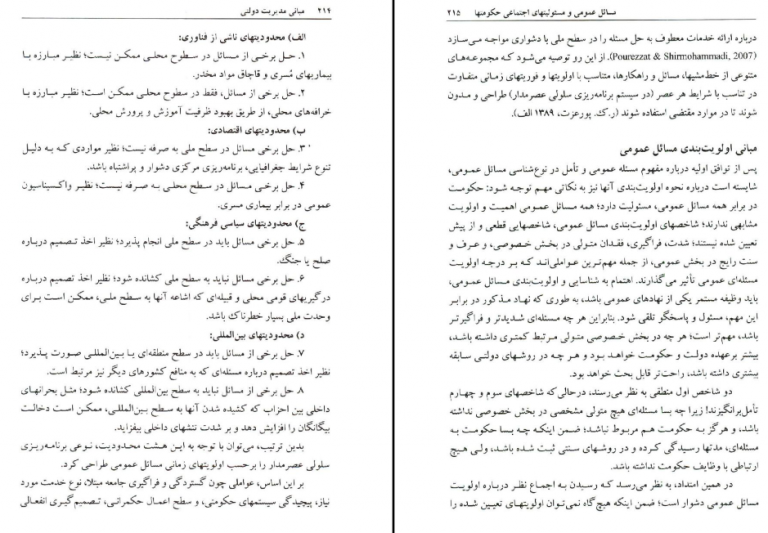 ۲۱۴ مبانی مدیریت دولتی
الف) محدودیتهای ناشی از فناوری:
۱. حل برخی از مسائل در سطوح محلی ممکن نیست؛ نظیر مبارزه با
بیماریهای مُسری و قاچاق مواد مخدر.
۲. حل برخی از مسائل، فقط در سطوح محلی ممکن است؛ نظیر مبارزه با
خرافه‌های محلی، از طریق بهبود ظرفیت آموزش و پرورش محلی.
ب) محدودیتهای اقتصادی:
۳. حل برخی مسائل در سطح ملی به صرفه نیست؛ نظیر مواردی که به دلیل
تنوع شرایط جغرافیایی، برنامه‌ریزی مرکزی دشوار و پراشتباه باشد.
۴. حل برخی مسائل در سطح محلی به صرفه نیست؛ نظیر واکسیناسیون
عمومی در برابر بیماری مسری.
ج) محدودیتهای سیاسی فرهنگی:
۵. حل برخی مسائل باید در سطح ملی انجام پذیرد؛ نظیر اخذ تصمیم درباره
صلح یا جنگ.
۶. حل برخی از مسائل نباید به سطح ملی کشانده شود؛ نظیر اخذ تصمیم درباره
درگیریهای قومی محلی و قبیله‌ای که اشاعه آنها به سطح ملی، ممکن است برای
وحدت ملی بسیار خطرناک باشد.
د) محدودیتهای بین‌المللی:
۷. حل برخی از مسائل باید در سطح منطقه‌ای یا بین‌المللی صورت پذیرد؛
نظیر اخذ تصمیم درباره مسئله‌ای که به منافع کشورهای دیگر نیز مرتبط است.
۸. حل برخی از مسائل نباید به سطح بین‌المللی کشانده شود؛ مثل بحرانهای
داخلی بین احزاب که کشیده شدن آنها به سطح بین‌المللی، ممکن است دخالت
بیگانگان را افزایش دهد و بر شدت تنشهای داخلی بیفزاید.
بدین ترتیب، می‌توان با توجه به این هشت محدودیت، نوعی برنامه‌ریزی
سلولی عصرمدار را برحسب اولویتهای زمانی مسائل عمومی طراحی کرد.
بر این اساس، عواملی چون گستردگی و فراگیری جامعه مبتلا، نوع خدمت مورد
نیاز، پیچیدگی سیستمهای حکومتی، و سطح اعمال حکمرانی، تصمیم‌گیری انفعالی
مسائل عمومی و مسئولیتهای اجتماعی حکومتها ۲۱۵
درباره ارائه خدمات معطوف به حل مسئله را در سطح ملی با دشواری مواجه می‌سازد
(Pourezzat & Shirmohammadi, 2007). از این رو توصیه می‌شود که مجموعه‌های
متنوعی از خط‌مشیها، مسائل و راهکارها، متناسب با اولویتها و فوریتهای زمانی متفاوت
در تناسب با شرایط هر عصر (در سیستم برنامه‌ریزی سلولی عصرمدار) طراحی و مدون
شوند تا در موارد مقتضی استفاده شوند (ر.ک. پورعزت، ۱۳۸۹ الف).
مبانی اولویت‌بندی مسائل عمومی
پس از توافق اولیه درباره مفهوم مسئله عمومی و تأمل در نوع‌شناسی مسائل عمومی،
شایسته است درباره نحوه اولویت‌بندی آنها نیز به نکاتی مهم توجه شود: حکومت
در برابر همه مسائل عمومی، مسئولیت دارد؛ همه مسائل عمومی اهمیت و اولویت
مشابهی ندارند؛ شاخصهای اولویت‌بندی مسائل عمومی، شاخصهایی قطعی و از پیش
تعیین شده نیستند؛ شدت، فراگیری، فقدان متولی در بخش خصوصی، و عرف و
سنت رایج در بخش عمومی، از جمله مهم‌ترین عواملی‌اند که بر درجه اولویت
مسئله‌ای عمومی تأثیر می‌گذارند. اهتمام به شناسایی و اولویت‌بندی مسائل عمومی،
باید وظیفه مستمر یکی از نهادهای عمومی باشد، به طوری که نهاد مذکور در برابر
این مهم، مسئول و پاسخگو تلقی شود. بنابراین هر چه مسئله‌ای شدیدتر و فراگیرتر
باشد، مهم‌تر است؛ هر چه در بخش خصوصی متولی مرتبط کمتری داشته باشد،
بیشتر برعهده دولت و حکومت خواهد بود و هر چه در روشهای دولتی سابقه
بیشتری داشته باشد، راحت‌تر قابل بحث خواهد بود.
دو شاخص اول منطقی به نظر می‌رسند، درحالی که شاخصهای سوم و چهارم
تأمل‌برانگیزند؛ زیرا چه بسا مسئله‌ای هیچ متولی مشخصی در بخش خصوصی نداشته
باشد، و هرگز به حکومت هم مربوط نباشد؛ ضمن اینکه چه بسا حکومت به
مسئله‌ای، مدتها رسیدگی کرده و در روشهای سنتی ثبت شده باشد، ولی هیچ
ارتباطی با وظایف حکومت نداشته باشد.
در همین امتداد، به نظر می‌رسد که رسیدن به اجماع نظر درباره اولویت
مسائل عمومی دشوار است؛ ضمن اینکه هیچ گاه نمی‌توان اولویتهای تعیین شده را